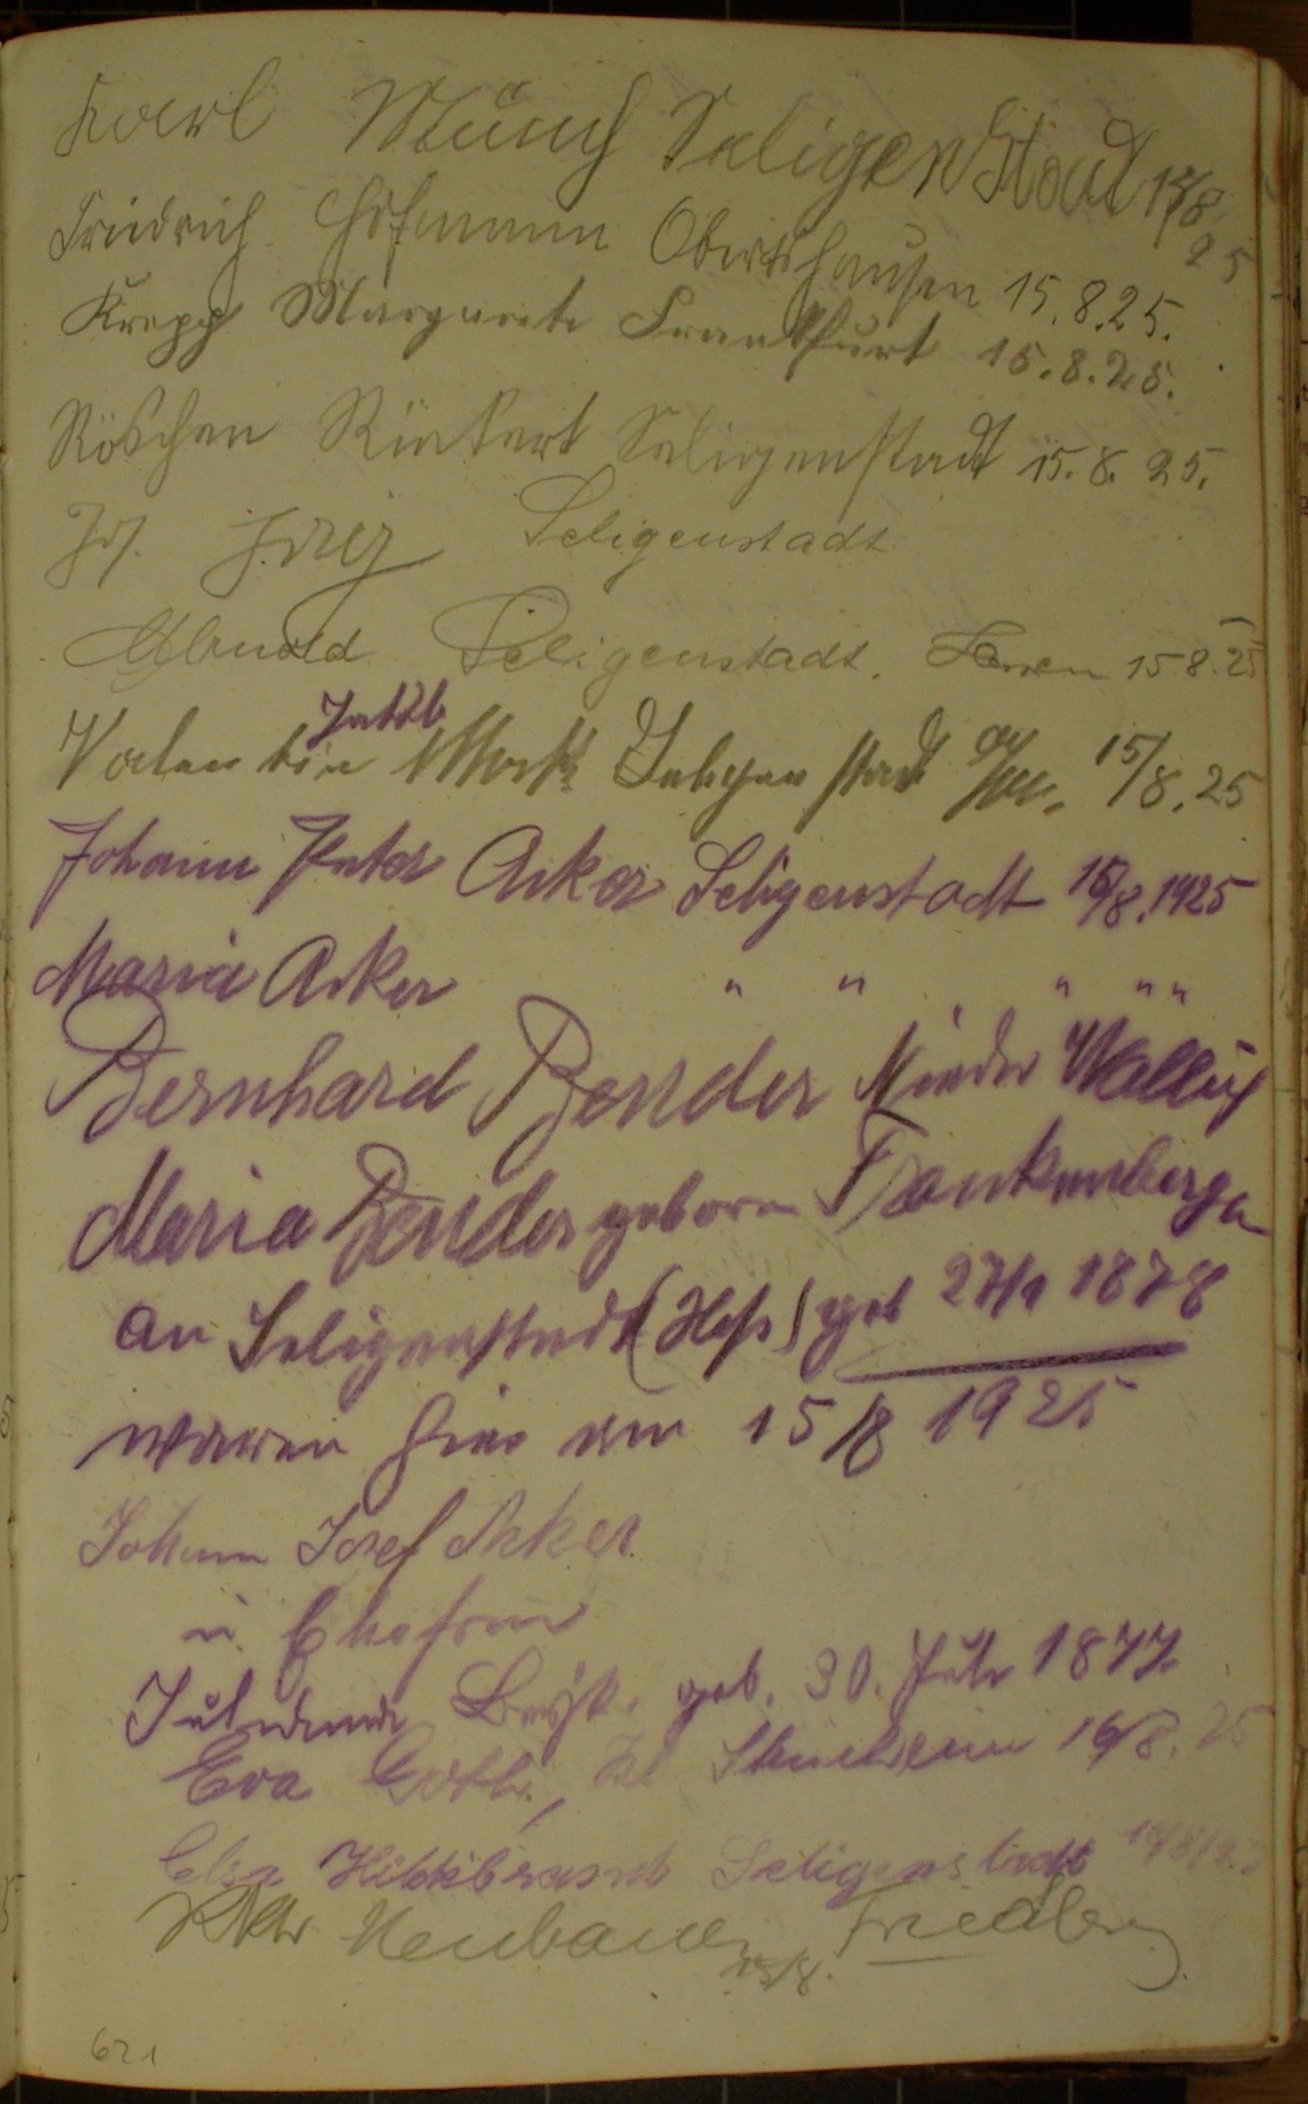 Karl Münch Seligenstad 15/8 25
Friedrich Hofmann Obertshausen 15.8.25.
Krepp Margarete Frankfurt 15.8.25.
Röschen Rückert Seligenstadt 15.8.25.
Seligenstadt
Seligenstadt. Hessen 15.8.25
Jakob
Valentin Seligenstadt 15/8.25
Johann Peter Acker Seligenstadt 15/8.1925
Maria Acker " " " " "
Bernhard Bender Nieder Walluf
Maria Bender geboren Frankenberger
au Seligenstadt (Hess) geb 27/1 1878
waren hier am 15/8 1925
Johann Josef Acker
u. Ehefrau
geb. 30. Juli 1877.
Eva 16/8. 25
Hildebrand Seligenstadt
Neubauer Friedberg
15/8.
621